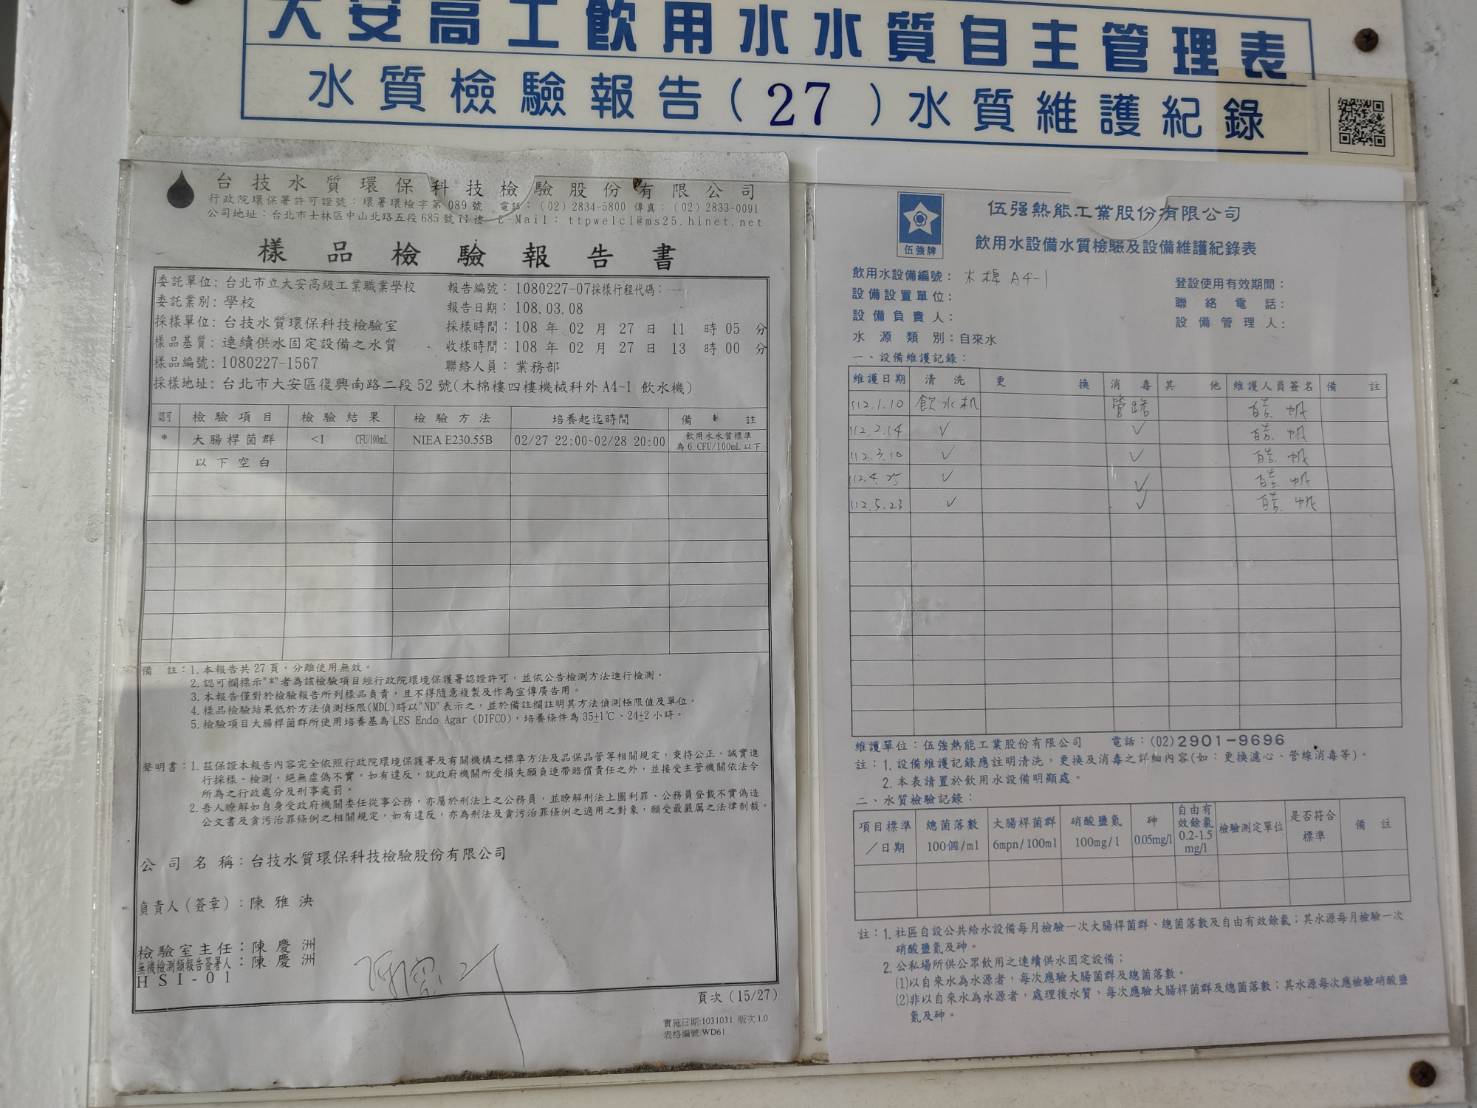 大安高工飲用水水質自主管理表
水質檢驗報告(27)水質維護紀錄
台技水質環保科技檢驗股份有限公司
行政院環保署許可證號：環署環檢字第089號 電話：(02)2834-5800 傳真：(02)2833-0091
公司地址：台北市士林區中山北路五段685號 E-Mail：ttpwelcl@ms25.hinet.net
樣品檢驗報告書
委託單位：台北市立大安高級工業職業學校 報告編號：1080227-07採樣行程代碼：—
委託業別：學校 報告日期：108.03.08
採樣單位：台技水質環保科技檢驗室 採樣時間：108 年 02 月 27 日 11 時 05 分
樣品基質：連續供水固定設備之水質 收樣時間：108 年 02 月 27 日 13 時 00 分
樣品編號：1080227-1567 聯絡人員：業務部
採樣地址：台北市大安區復興南路二段52號(木棉樓四樓機械科外A4-1 飲水機)
認可 檢驗項目 檢驗結果 檢驗方法 培養起迄時間 備註
* 大腸桿菌群 <1 CFU/100mL NIEA E230.55B 02/27 22:00-02/28 20:00 飲用水水質標準為6 CFU/100mL以下
以下空白
備 註：1.本報告共27頁，分離使用無效。
2.認可欄標示"*"者為該檢驗項目經行政院環境保護署認證許可，並依公告檢測方法進行檢測。
3.本報告僅對於檢驗報告所列樣品負責，且不得隨意複製及作為宣傳廣告用。
4.樣品檢驗結果低於方法偵測極限(MDL)時以"ND"表示之，並於備註欄註明其方法偵測極限值及單位。
5.檢驗項目大腸桿菌群所使用培養基為LES Endo Agar (DIFCO)，培養條件為35±1℃、24±2小時。
聲明書：1.茲保證本報告內容完全依照行政院環境保護署及有關機構之標準方法及品保品管等相關規定，秉持公正、誠實進
行採樣、檢測，絕無虛偽不實。如有違反，就政府機關所受損失願負連帶賠償責任之外，並接受主管機關依法令
所為之行政處分及刑事處罰。
2.吾人瞭解如自身受政府機關委任從事公務，亦屬於刑法上之公務員，並瞭解刑法上圖利罪、公務員登載不實偽造
公文書及貪污治罪條例之相關規定，如有違反，亦為刑法及貪污治罪條例之適用之對象，願受最嚴厲之法律制裁。
公司名稱：台技水質環保科技檢驗股份有限公司
負責人(簽章)：陳雅泱
檢驗室主任：陳慶洲
無機檢測類報告簽署人：陳慶洲
HSI-01
頁次(15/27)
實施日期:1031031 版次1.0
表格編號:WD61
伍強牌
伍强熱能工業股份有限公司
飲用水設備水質檢驗及設備維護紀錄表
飲用水設備編號：木棉 A4-1 登設使用有效期間：
設備設置單位： 聯絡電話：
設備負責人： 設備管理人：
水源類別：自來水
一、設備維護記錄：
維護日期 清洗 更換 消毒 其他 維護人員簽名 備註
112.1.10 飲水机 管路
112.2.14 ✓ ✓
112.3.10 ✓ ✓
112.4.25 ✓ ✓
112.5.23 ✓ ✓
維護單位：伍強熱能工業股份有限公司 電話：(02)2901-9696
註：1.設備維護記錄應註明清洗、更換及消毒之詳細內容(如：更換濾心、管線消毒等)。
2.本表請置於飲用水設備明顯處。
二、水質檢驗記錄：
項目標準／日期 總菌落數100個/ml 大腸桿菌群6mpn/100ml 硝酸鹽氮100mg/l 砷0.05mg/l 自由有效餘氯0.2-1.5mg/l 檢驗測定單位 是否符合標準 備註
註：1.社區自設公共給水設備每月檢驗一次大腸桿菌群、總菌落數及自由有效餘氯；其水源每月檢驗一次
硝酸鹽氮及砷。
2.公私場所供公眾飲用之連續供水固定設備：
(1)以自來水為水源者，每次應驗大腸菌群及總菌落數。
(2)非以自來水為水源者，處理後水質，每次應驗大腸桿菌群及總菌落數；其水源每次應檢驗硝酸鹽
氮及砷。